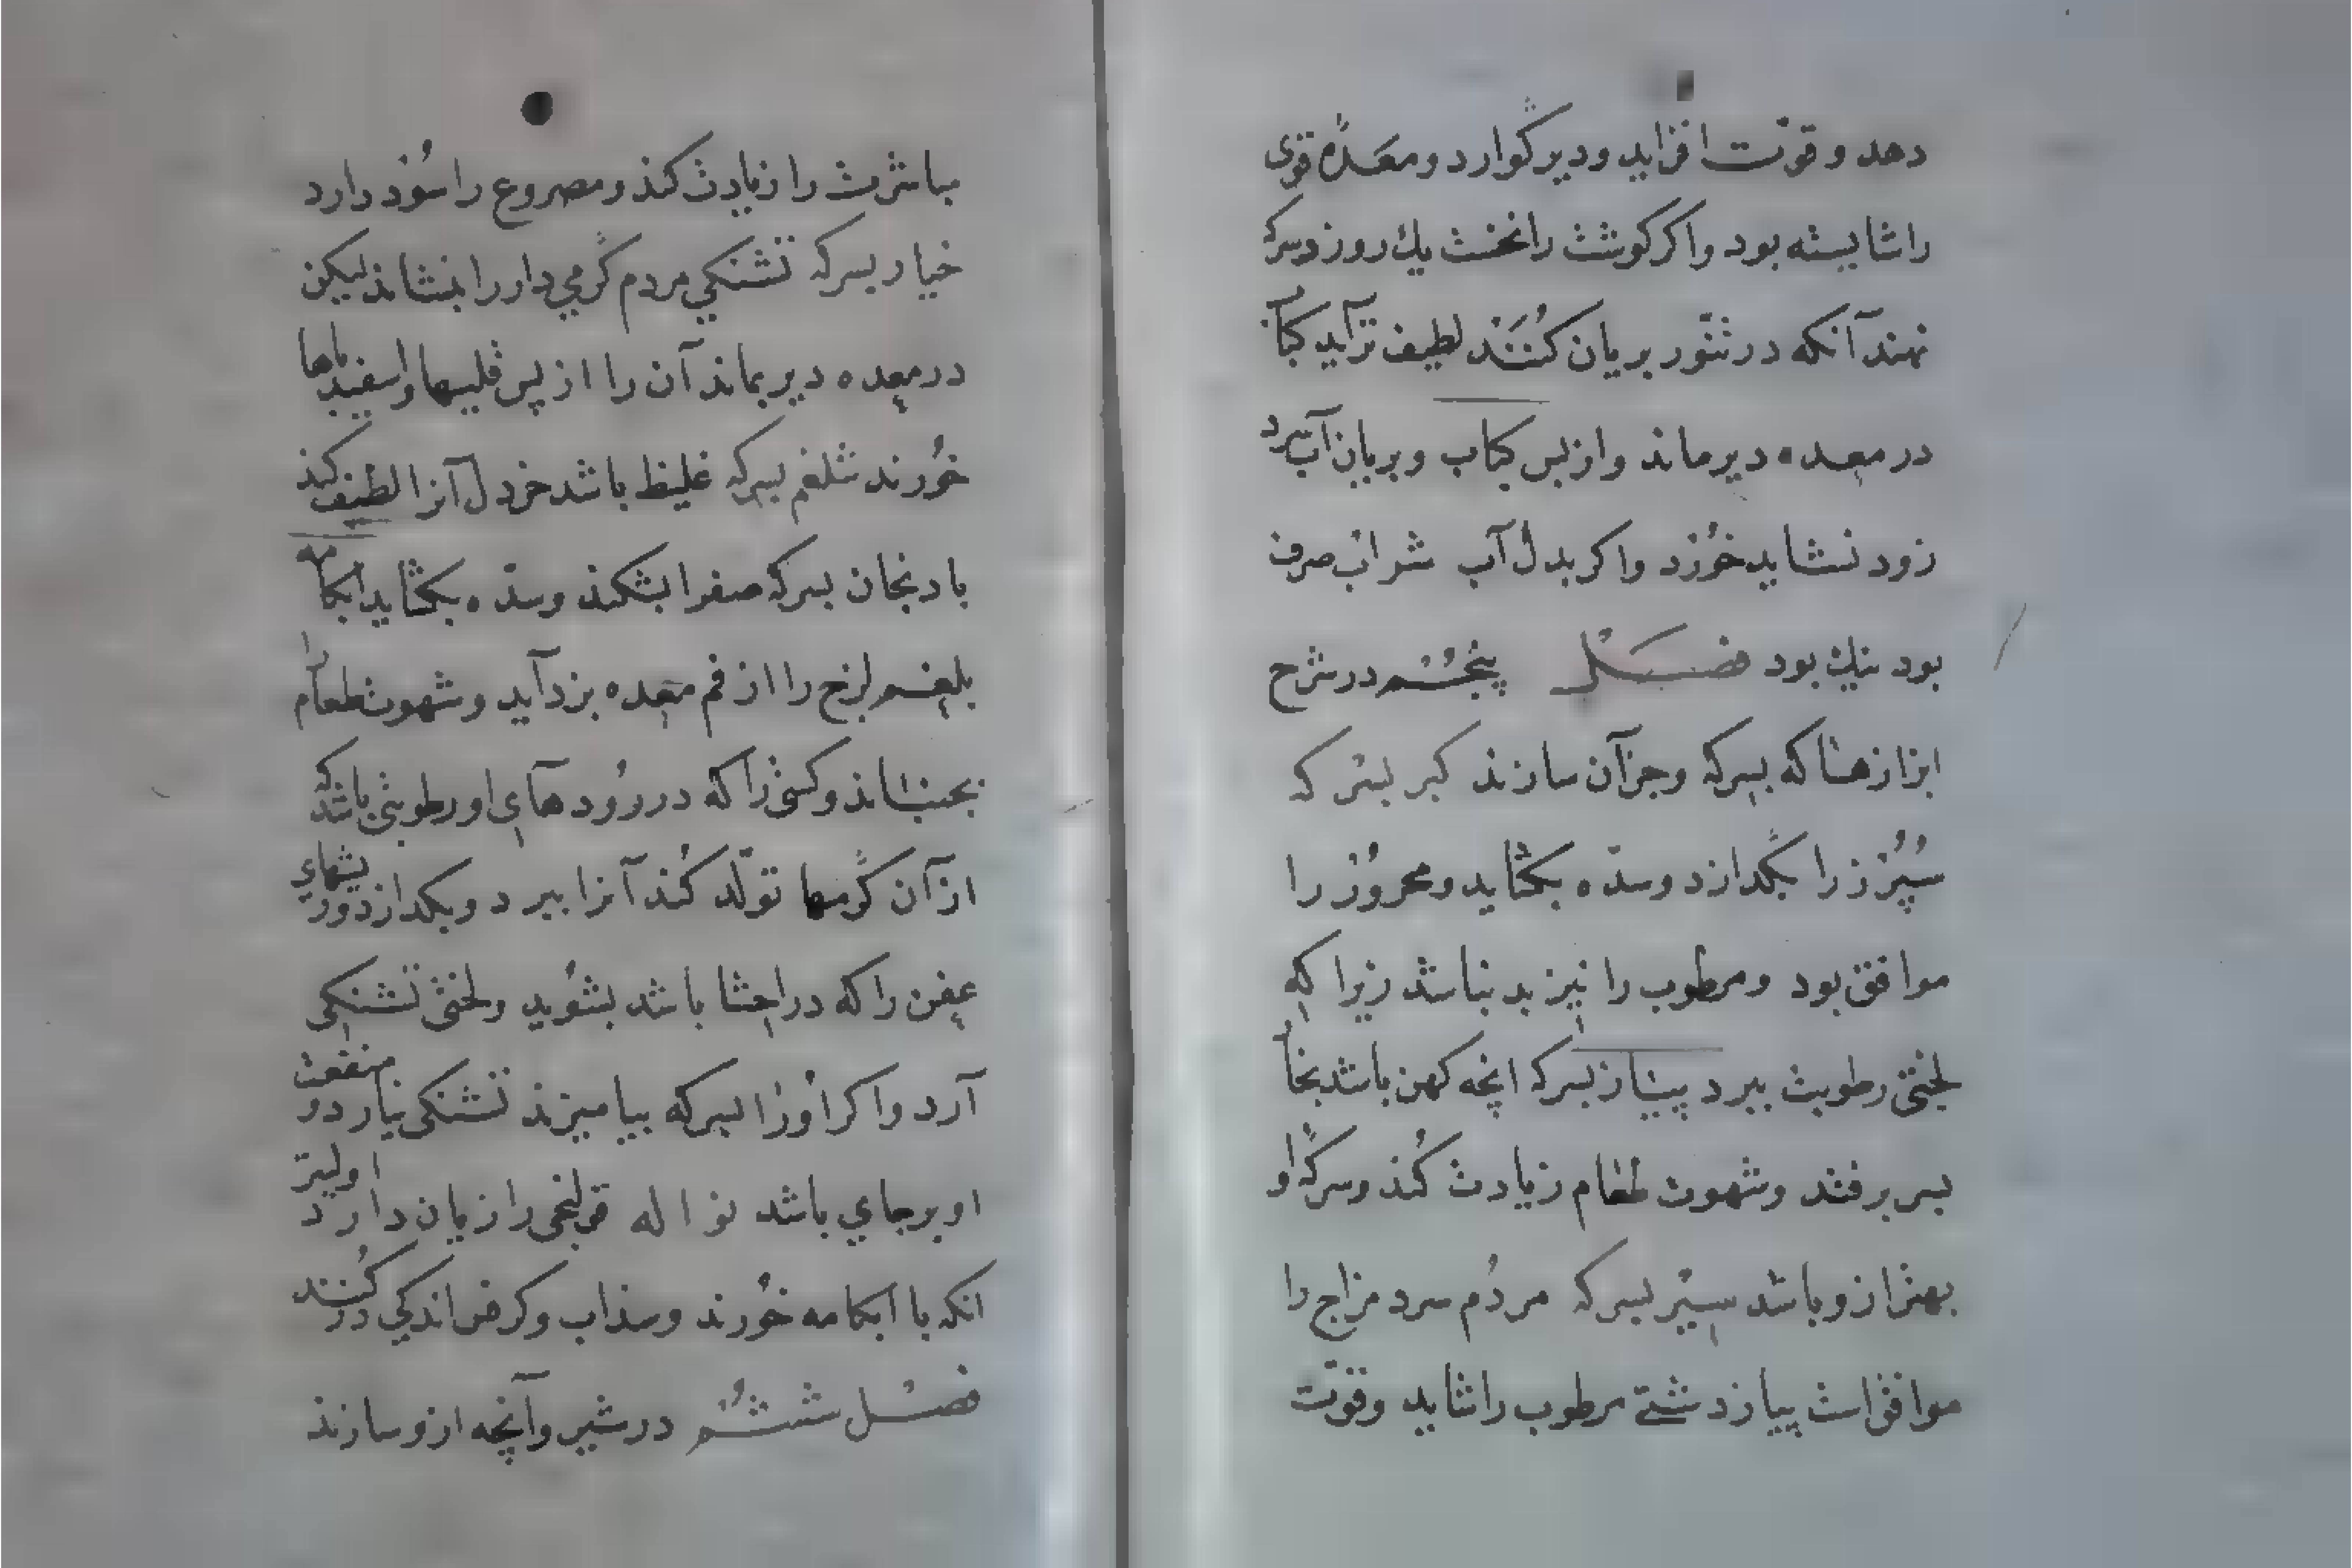 دهد و قوّت افزاید و دیر گوارد و معدهٔ قوی
را شایسته بود و اکر کوشت را نخست یك روز در سرکه
نهند آنکه در تنّور بریان کُنَنْد لطیف تر آید کباب
در معده دیر ماند و از پس کباب و بریان آب سرد
زود نشاید خوُرد و اکر بدل آب شراب صرف
بود نیك بود فصل پنجُم در شرح
ابزارهنا که بسرکه و جز آن سازند کبر بسرکه
سُپُرز را بگدازد و سدّه بکشاید و محرور را
موافق بود و مرطوب را نیز بد نباشد زیرا که
لختی رطوبت ببرد پیاز بسرکه انچه کهن باشد بخار
بسر برفند و شهوت طعام زیادت کُند و سرکهٔ او
بهتر ازو باشد سیر بسرکه مردُم سرد مزاج را
موافق است پیاز دشتی مرطوب را شاید و قوّت
مباشرت را زیادت کند و مصروع را سُود دارد
خیار بسرکه تشنکي مردم گرمي دار را بنشاند لیکن
در معده دیر بماند آن را از پس قلیها و اسفیدباها
خوُرند شلغم بسرکه غلیظ باشد خردل آنرا لطیف کند
بادنجان بسرکه صفرا بشکند و سدّه بکشاید ابکامه
بلغم لزج را از فم معده بزدآید و شهوت طعام را
بجنباند و کسی را که در رُودهآي او رطوبتی باشد که
از آن گرمها تولّد کُند آنرا ببرد و بکدازد و ریشهاي
عفن را که در احشا باشد بشوُید و لختی تشنکی
آرد و اکر او را بسرکه بیامیزند تشنکی نیارد و منفعت
او برجاي باشد نواله قولنجی را زیان دارد اولیتر
انکه با ابکامه خوُرند و سذاب و کرفس اندکي در کُنند
فصل ششُم در شیر و آنچه ازو سازند